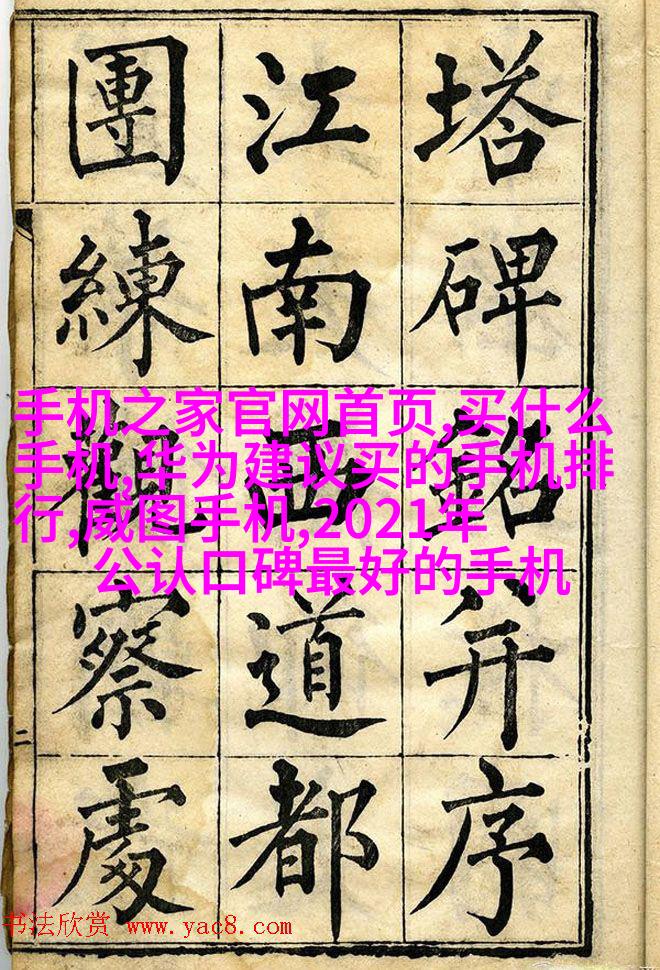 塔碑銘并序
江南西道都
團練觀察處
二
手机之家官网首页,买什么
手机,华为建议买的手机排
行,威图手机,2021年
公认口碑最好的手机
书法欣赏 www.yac8.com